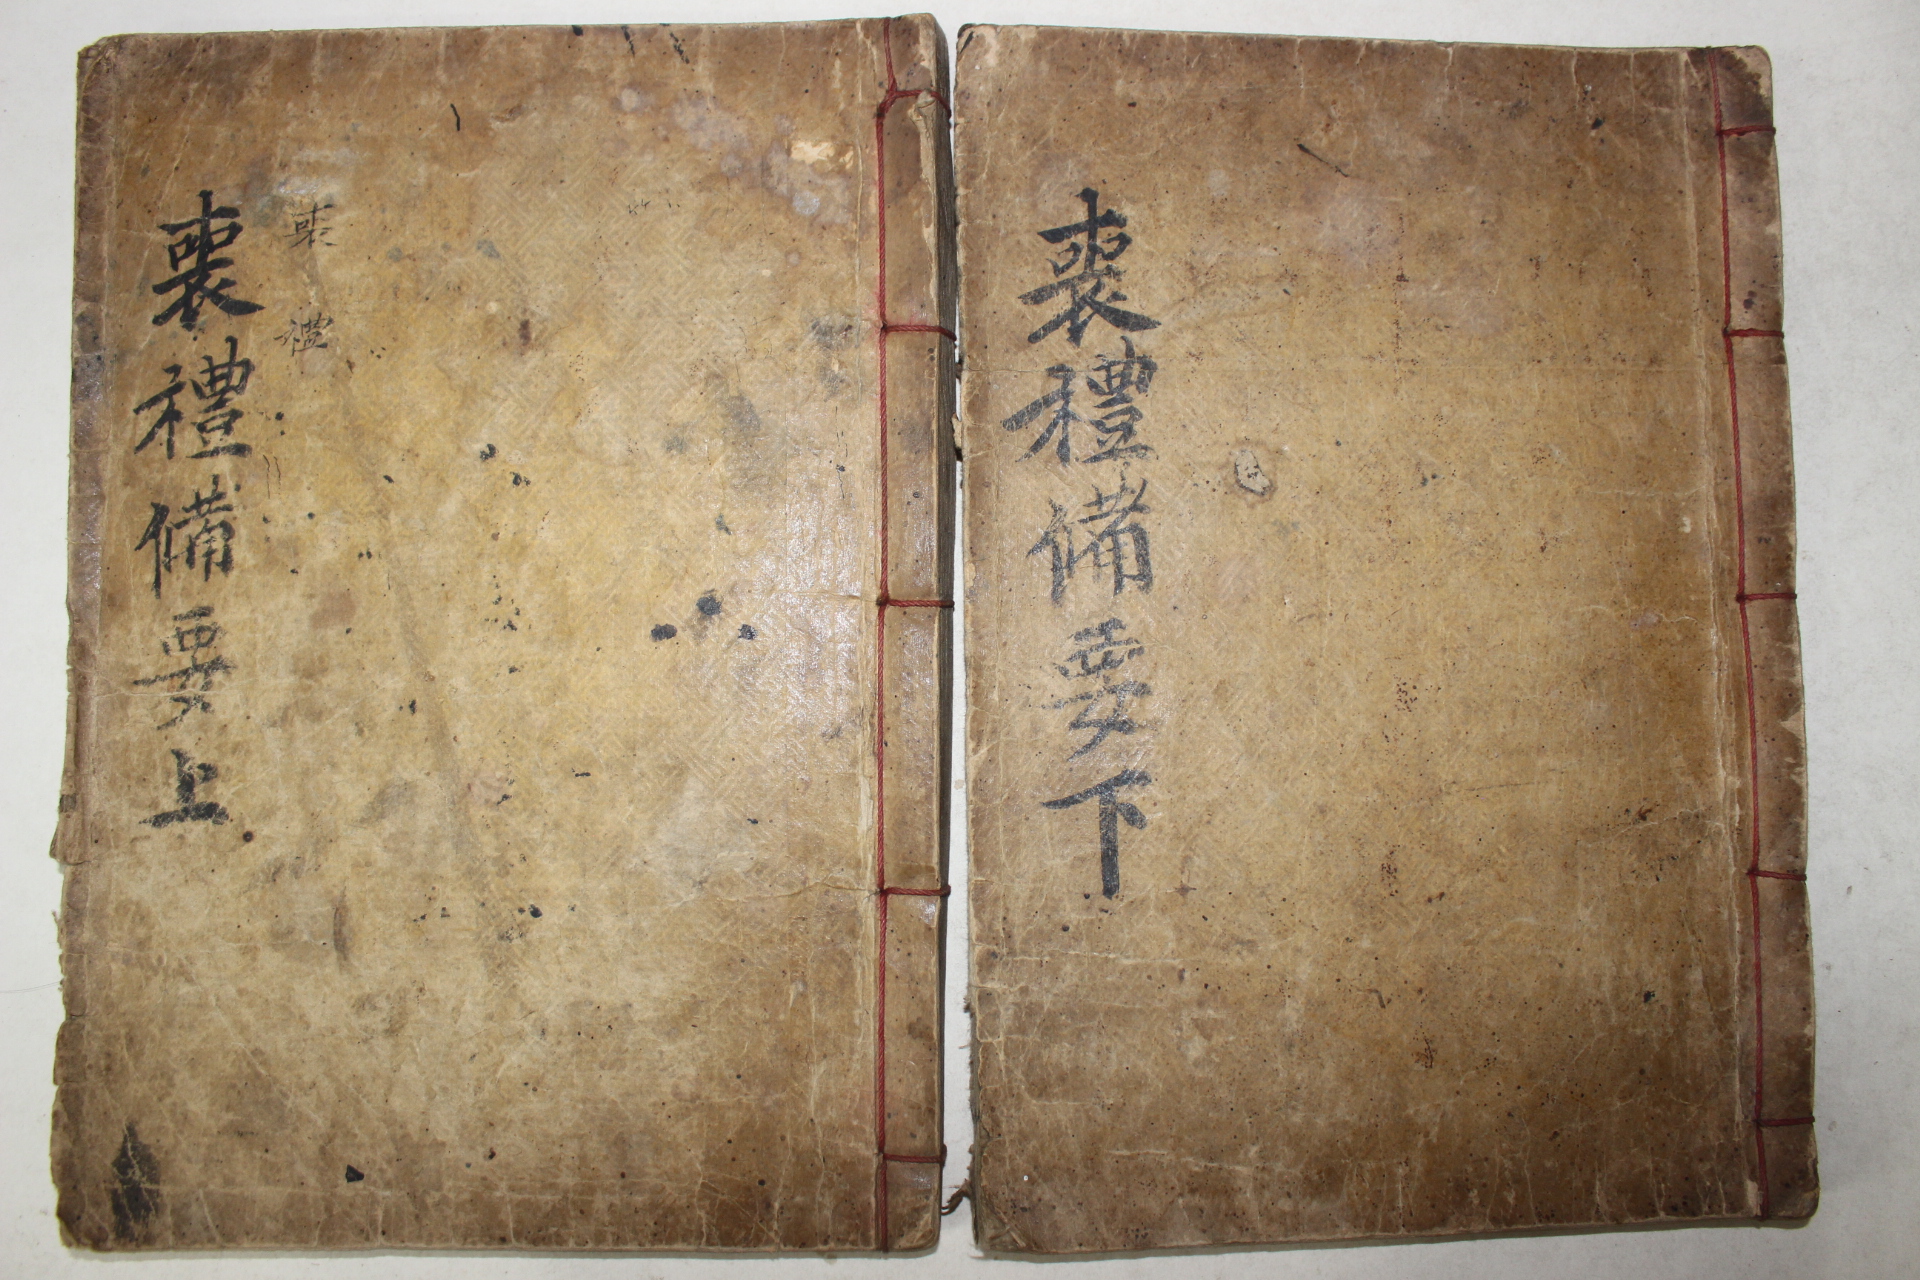 喪禮備要上
喪禮
喪禮備要下